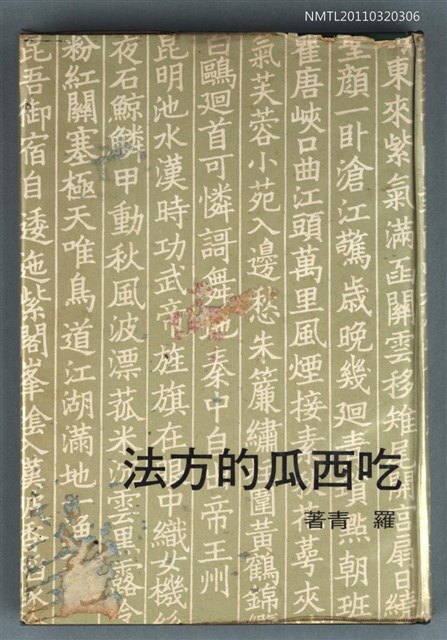 NMTL20110320306
東來紫氣滿函關雲移雉尾開宮扇日繞
聖顏一臥滄江驚歲晚幾迴青瑣點朝班
瞿唐峽口曲江頭萬里風煙接素 萼夾
氣芙蓉小苑入邊愁朱簾繡 圍黃鶴錦纜
白鷗迴首可憐謌舞地秦中自 帝王州
昆明池水漢時功武帝旌旗在眼中織女機絲
夜石鯨鱗甲動秋風波漂菰米沈雲黑露冷
粉紅關塞極天唯鳥道江湖滿地一
昆吾御宿自逶迤紫閣峯陰入渼陂
吃西瓜的方法
羅青著